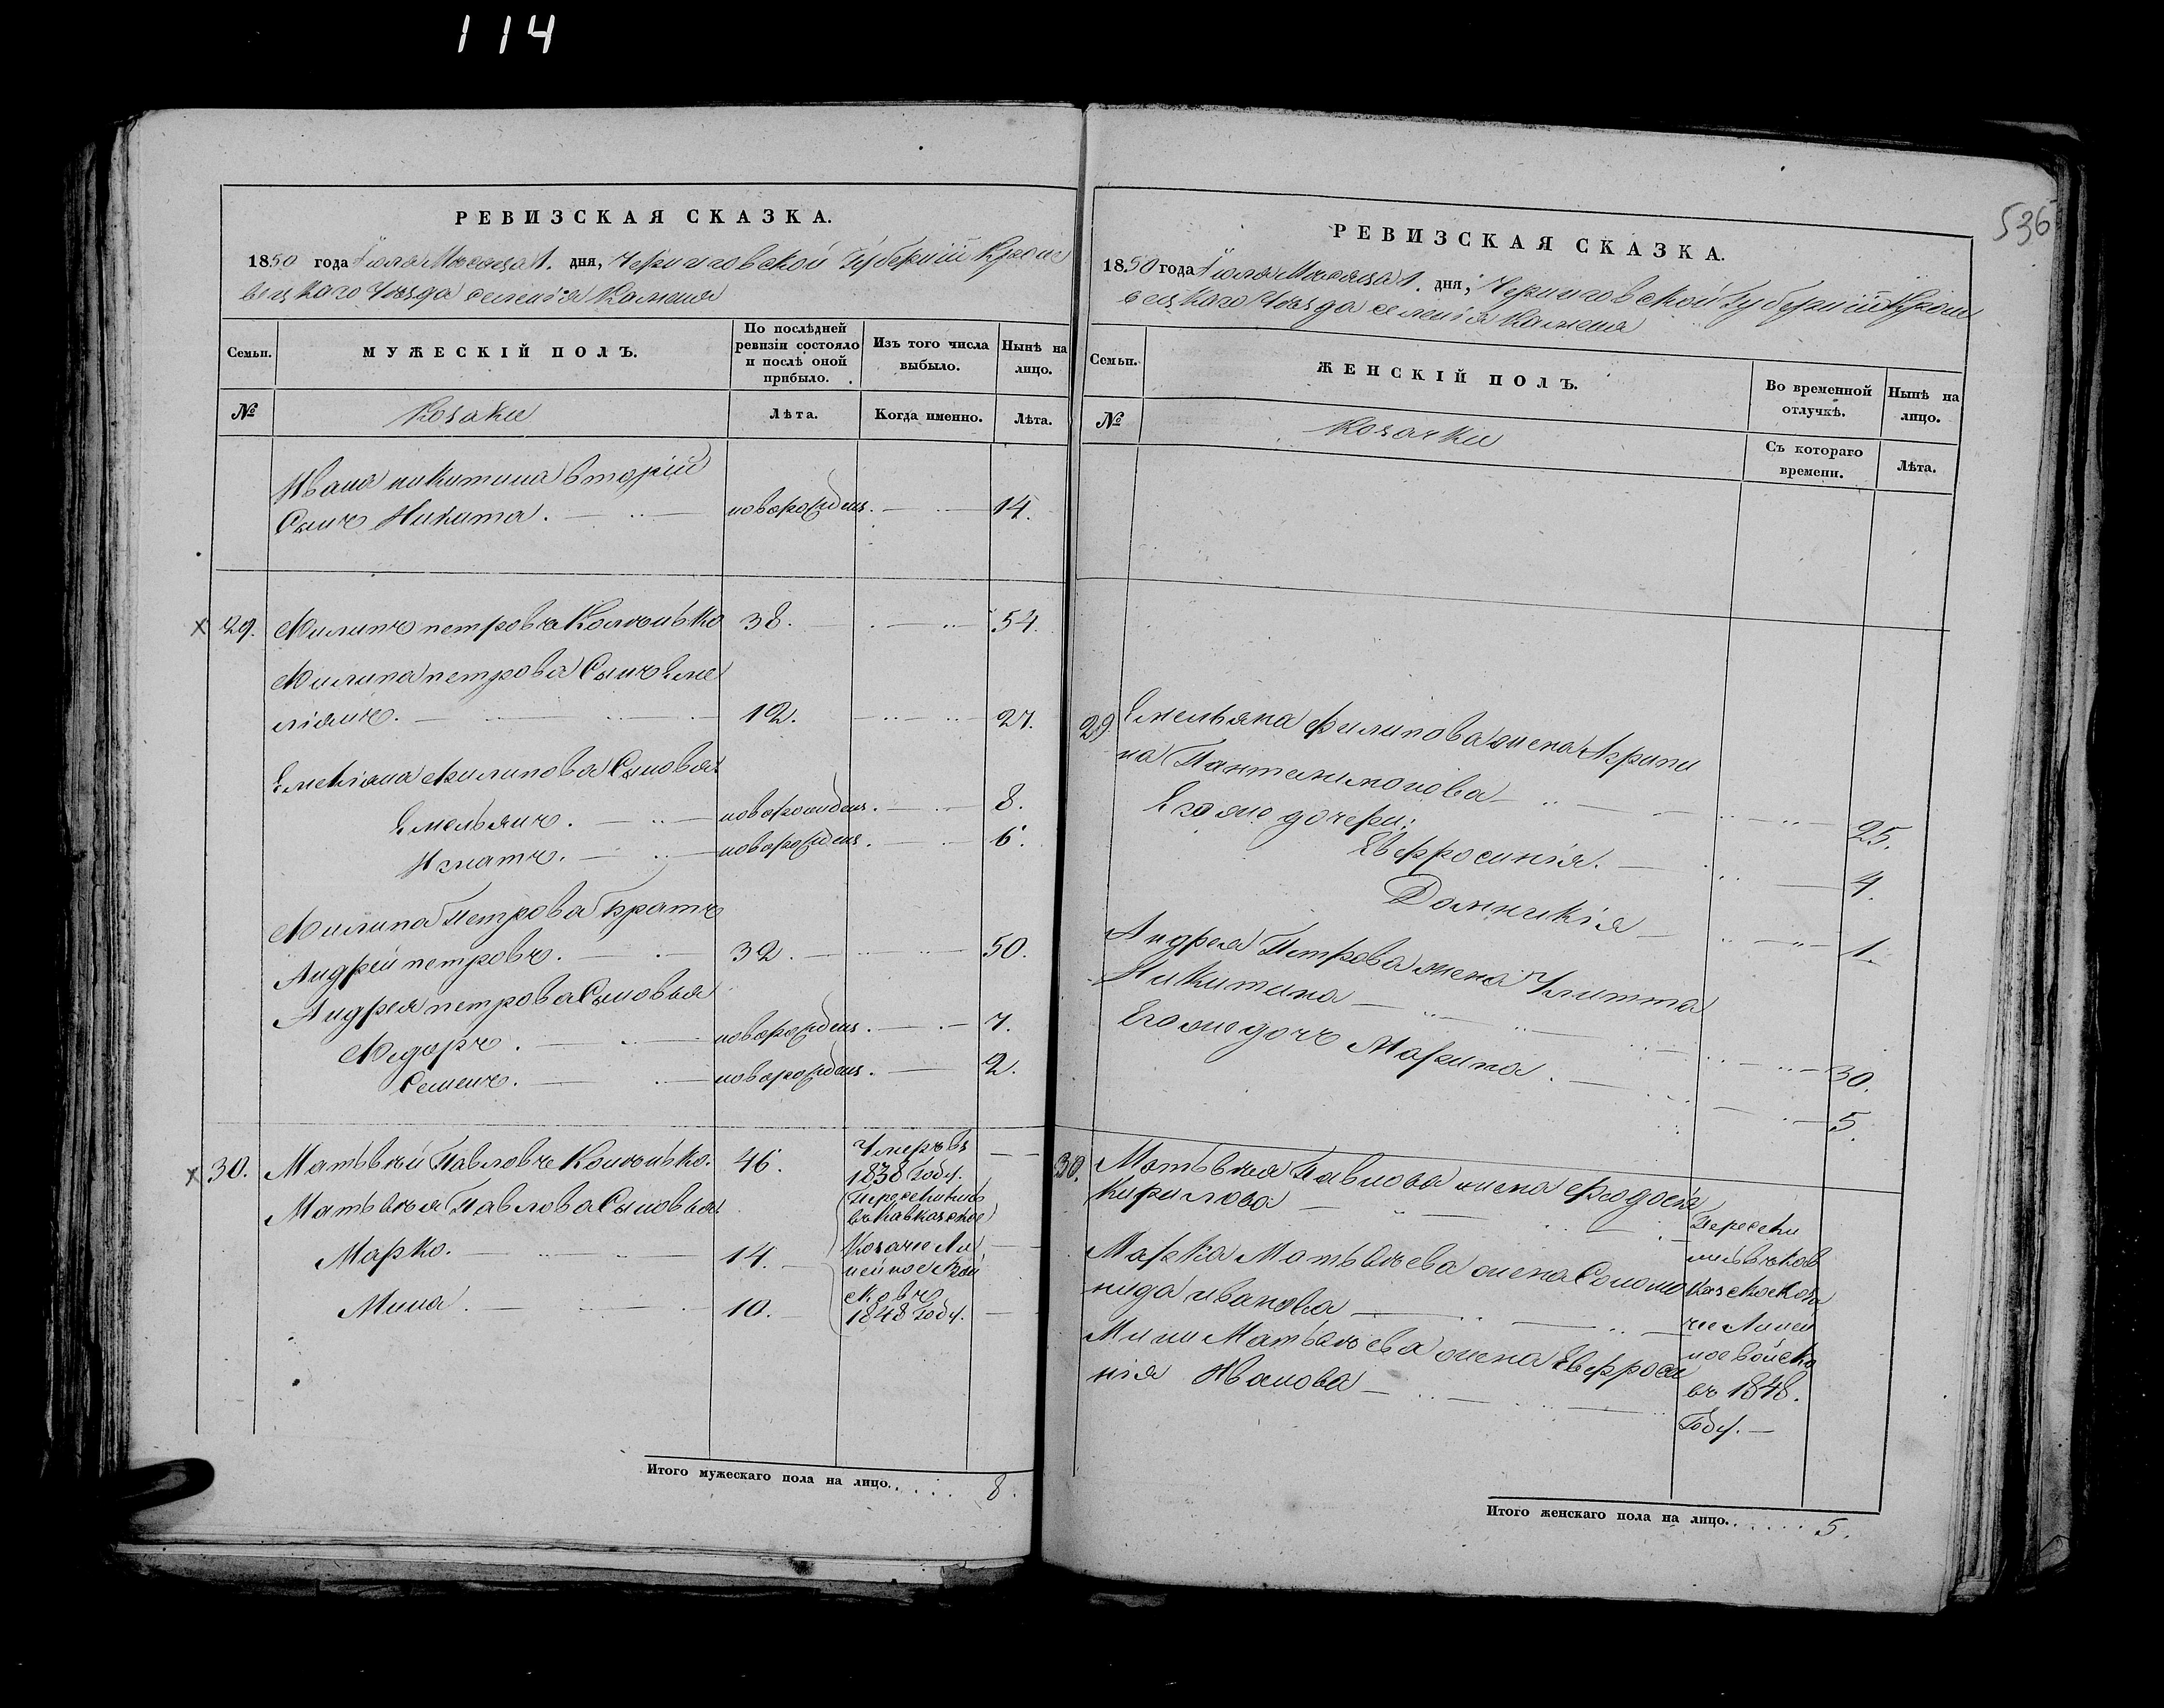 114
536
РЕВИЗСКАЯ СКАЗКА.
1850 года Іюля Месяца 1. дня, Черниговской Губерніи Кроле
вецкаго Уѣзда селенія Каменя
Семьи.
МУЖЕСКІЙ ПОЛЪ.
По послѣдней ревизіи состояло и послѣ оной прибыло.
Изъ того числа выбыло.
Нынѣ на лицо.
№
Козаки
Лѣта.
Когда именно.
Лѣта.
Ивана никитина вторій
Сынъ Никита. новорожден. 14.
29. Филипъ петровъ 38. 54.
Филипа петрова Сынъ Еме
ліянъ. 12. 27.
Емеліяна филипова Сыновья
Емельянъ. новорожден. 8.
Игнатъ. новорожден. 6.
Филипа Петрова братъ
Андрей петровъ. 32. 50.
Андрея петрова Сыновья
Федоръ. новорожден. 7.
Семенъ. новорожден. 2.
30. Матвѣй Павловъ 46. Умеръ въ
1838 Году.
Матвѣя Павлова Сыновья
Марко. 14.
Мина. 10.
Переселились
въ Кавказское
Козачье Ли
нейное Вой
ско въ
1848 Году.
Итого мужескаго пола на лицо. 8.
РЕВИЗСКАЯ СКАЗКА.
1850 года Іюля Месяца 1. дня, Черниговской Губерніи Кроле
вецкаго Уѣзда селенія Каменя
Семьи.
ЖЕНСКІЙ ПОЛЪ.
Во временной отлучкѣ.
Нынѣ на лицо.
№
Козачки
Съ котораго времени.
Лѣта.
29. Емельяна Филипова жена Агрипи
на Пантелимонова 25.
Его же дочери:
Евфросинія. 4.
Домникія 1.
Андрея Петрова жена Улитта
Никитина 30.
Его же дочъ Марина. 5.
30. Матвѣя Павлова жена Феодосія
Кирилова
Марка Матвѣева жена Соломо
нида иванова
Мини Матвѣева жена Евфроси
нія Иванова
Пересели
лись въ Кав
казское Коза
чье Линей
ное войско
въ 1848.
Году.
Итого женскаго пола на лицо. 5.